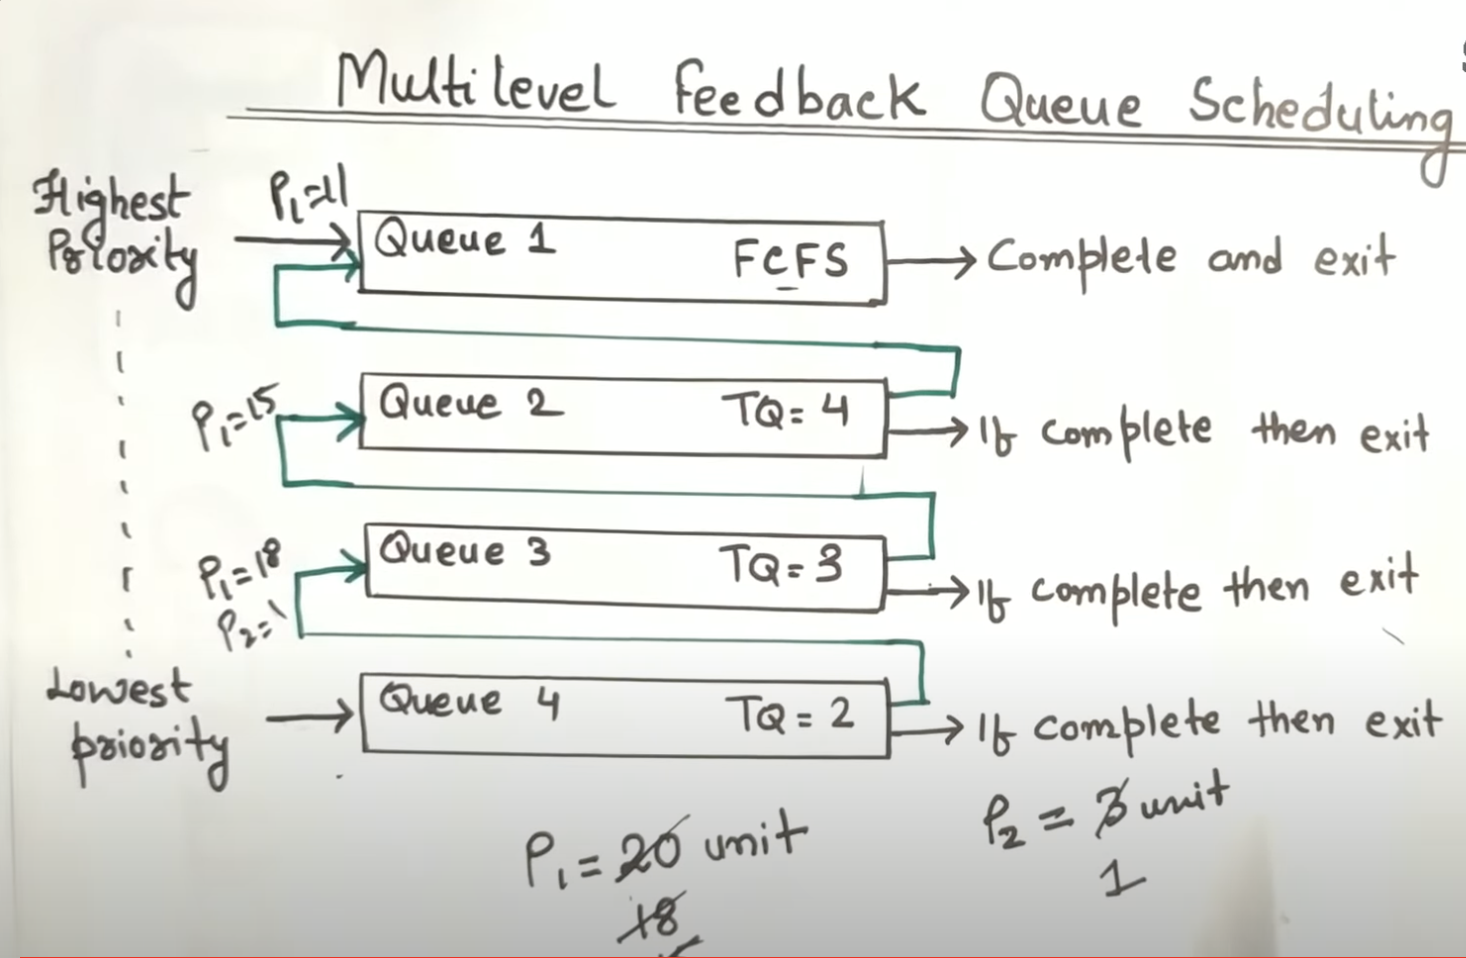 Multilevel Feedback Queue Scheduling
Highest Priority
P1=11
Queue 1 FCFS
Complete and exit
P1=15
Queue 2 TQ=4
If complete then exit
P1=18
P2=1
Queue 3 TQ=3
If complete then exit
Lowest priority
Queue 4 TQ=2
If complete then exit
P1=20 unit
18
P2=3 unit
1